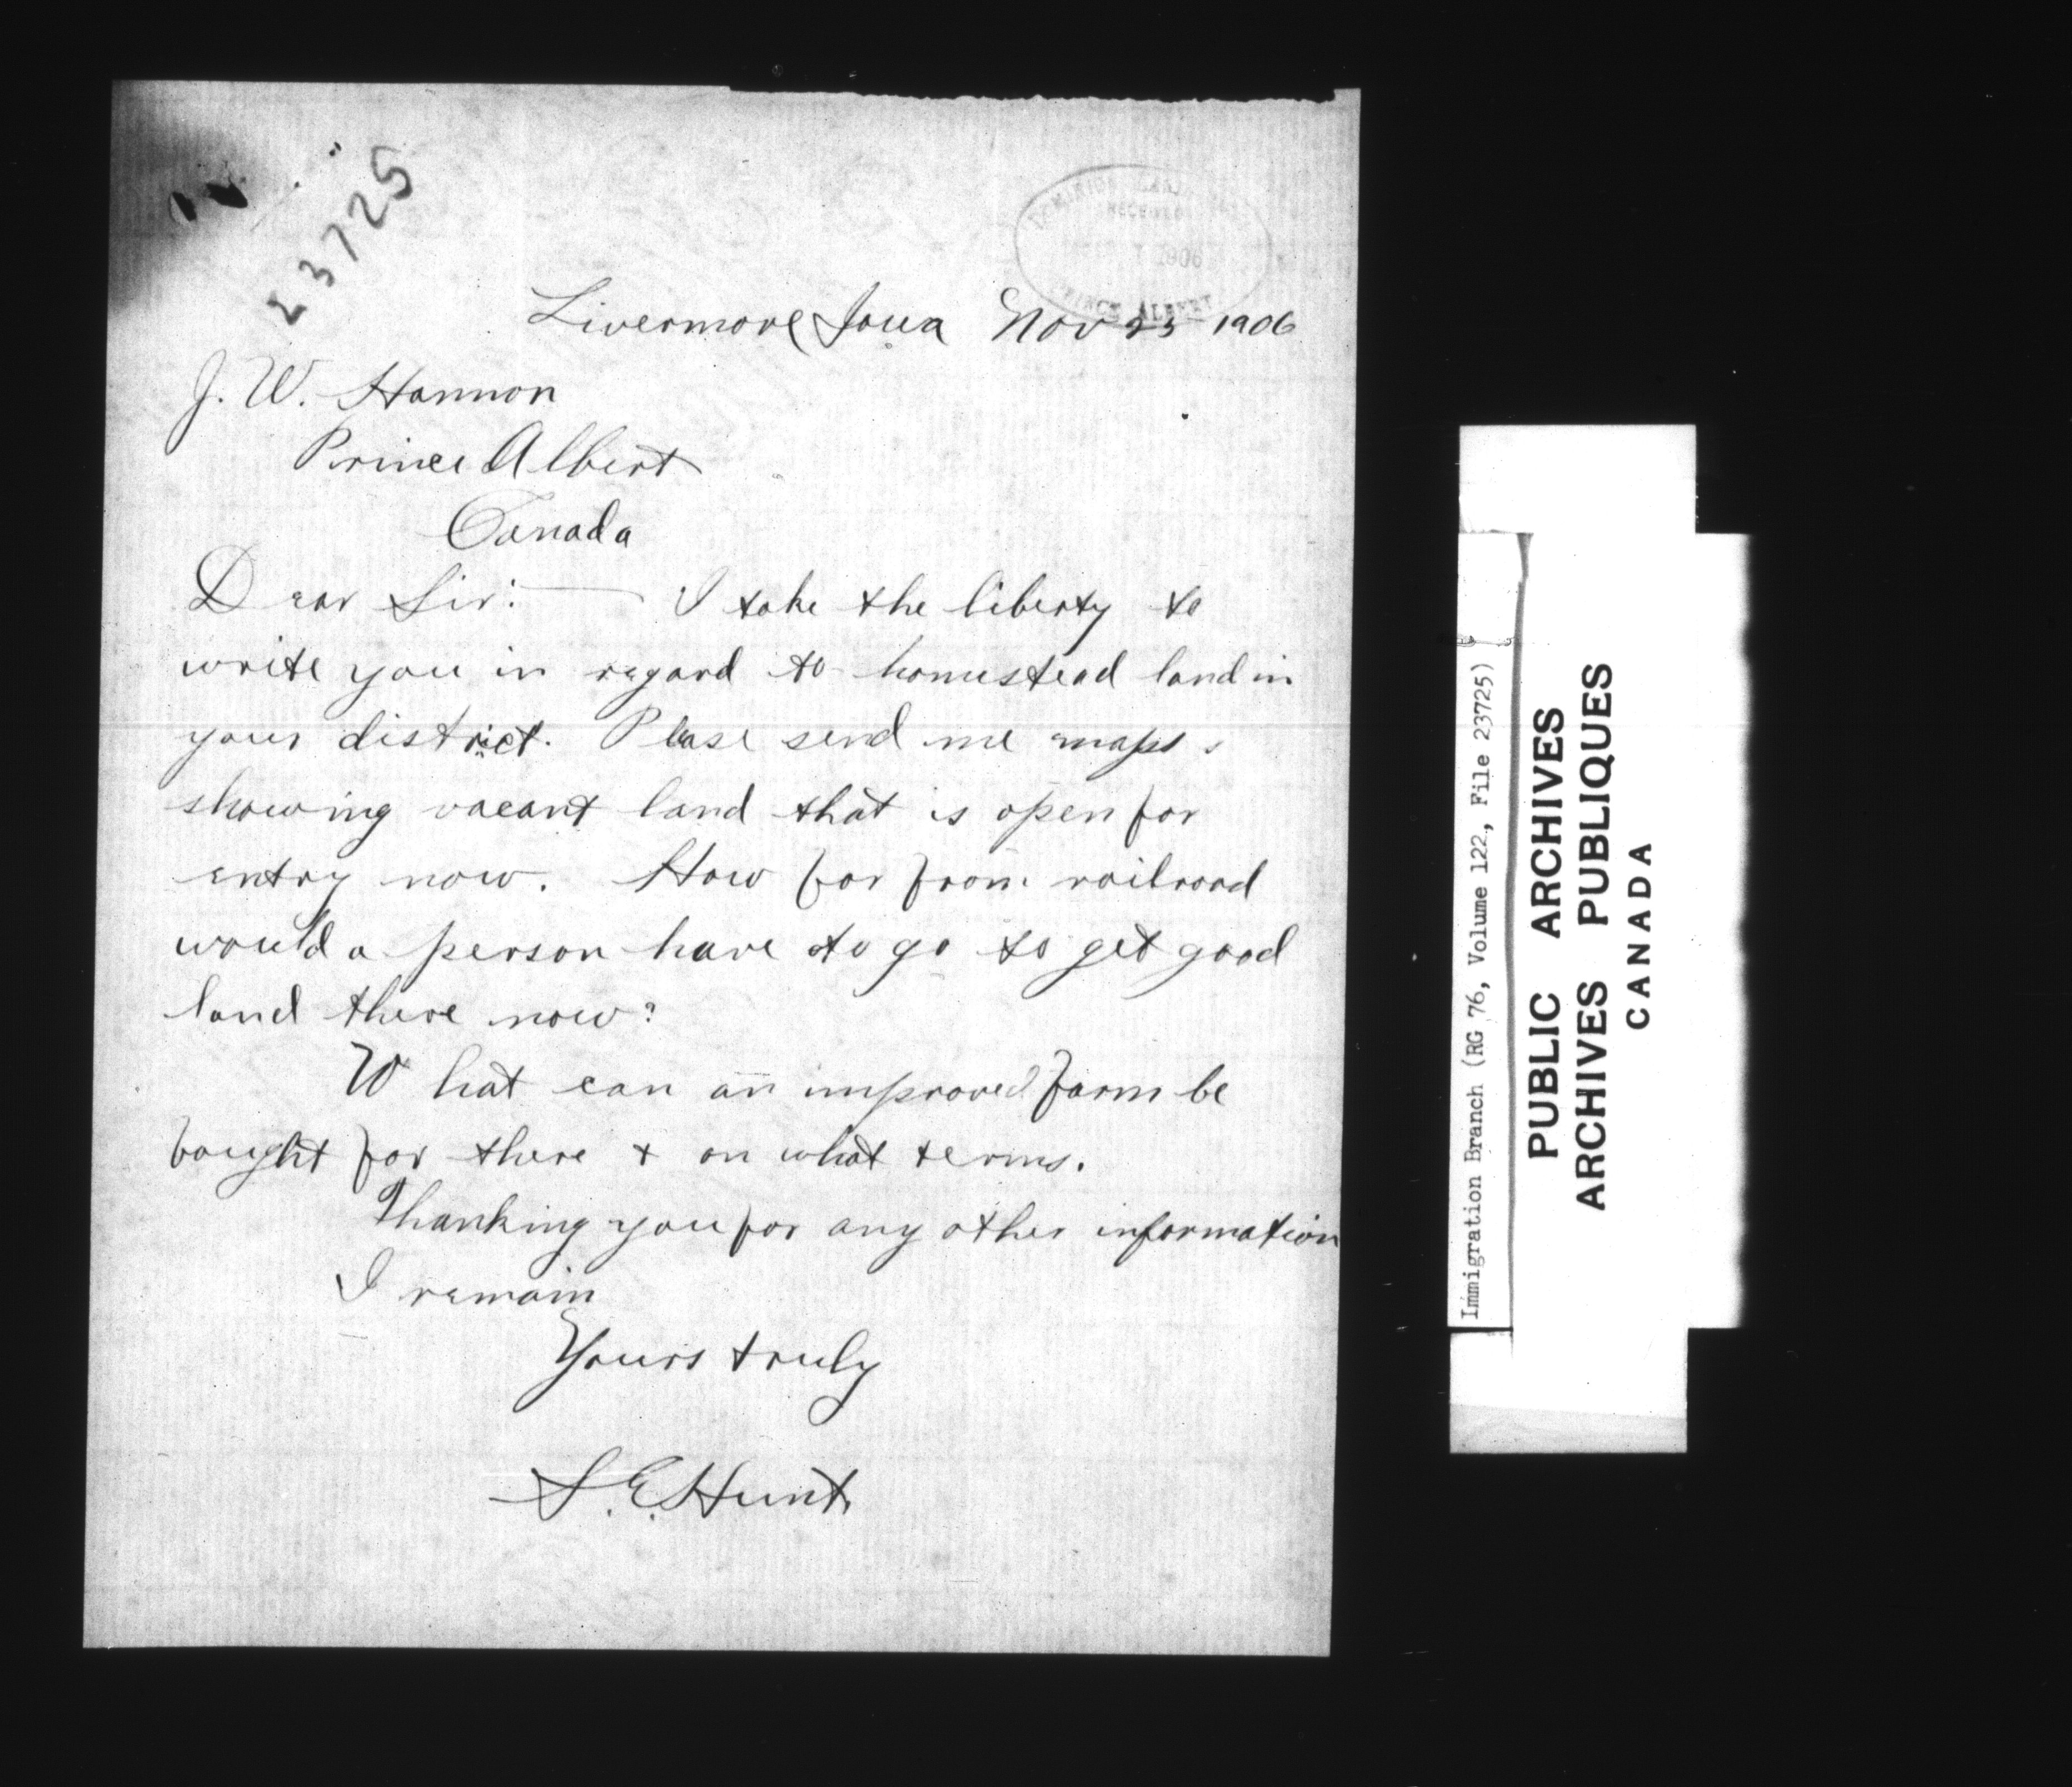 23725
DOMINION LAND
RECEIVED
1906
PRINCE ALBERT
Livermore Iowa Nov 23 1906
J. W. Hannon
Prince Albert
Canada
Dear Sir: I take the liberty to
write you in regard to homestead land in
your district. Please send me maps
showing vacant land that is open for
entry now. How far from railroad
would a person have to go to get good
land there now?
What can an improved farm be
bought for there & on what terms.
Thanking you for any other information
I remain
Yours truly
S. E. Hunt
Immigration Branch (RG 76, Volume 122, File 23725)
PUBLIC ARCHIVES
ARCHIVES PUBLIQUES
CANADA